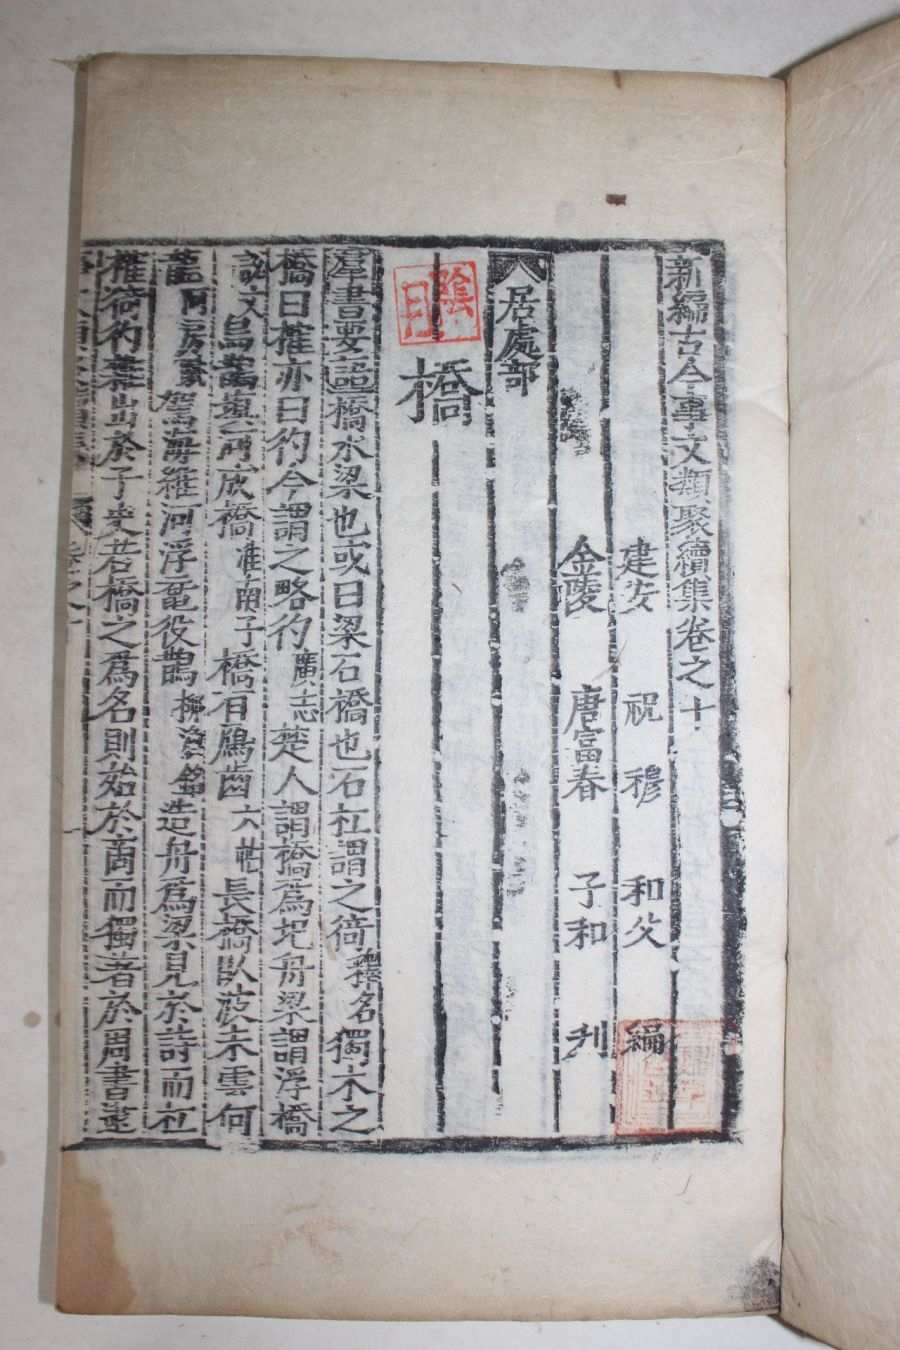 新編古今事文類聚續集卷之十
建安 祝 穆 和父 編
金陵 唐富春 子和 刋
居處部
橋
羣書要語橋水梁也或曰梁石橋也石杠謂之徛釋名獨木之
橋曰榷亦曰彴今謂之略彴廣志楚人謂橋爲圯舟梁謂浮橋
說文烏鵲塡河成橋淮南子橋有鴈齒六帖長橋臥波未雲何
龍阿房賦駕海維河浮黿役鵲造舟爲梁見於詩而杠
榷徛彴雜出於子史若橋之爲名則始於商而獨著於周書遠